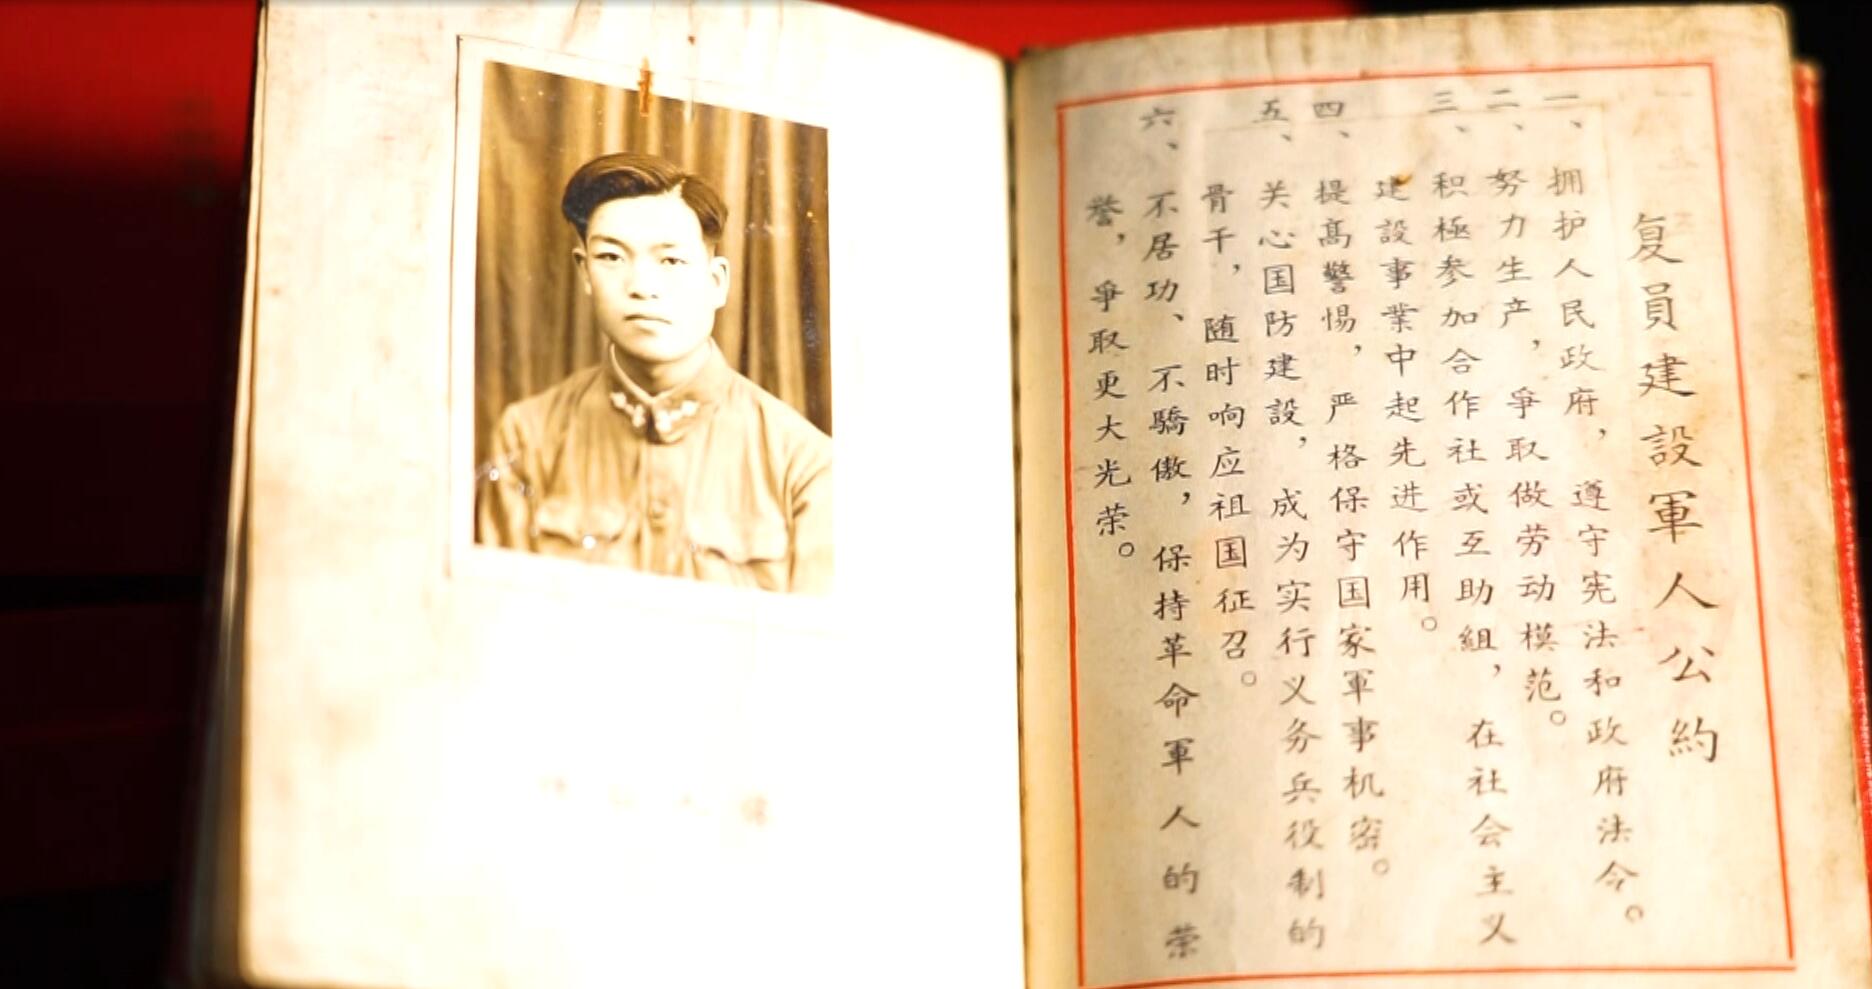 复員建設軍人公約
一、拥护人民政府，遵守宪法和政府法令。
二、努力生产，爭取做劳动模范。
三、积極参加合作社或互助組，在社会主义
建設事業中起先进作用。
四、提高警惕，严格保守国家軍事机密。
五、关心国防建設，成为实行义务兵役制的
骨干，随时响应祖国征召。
六、不居功、不驕傲，保持革命軍人的荣
誉，爭取更大光荣。